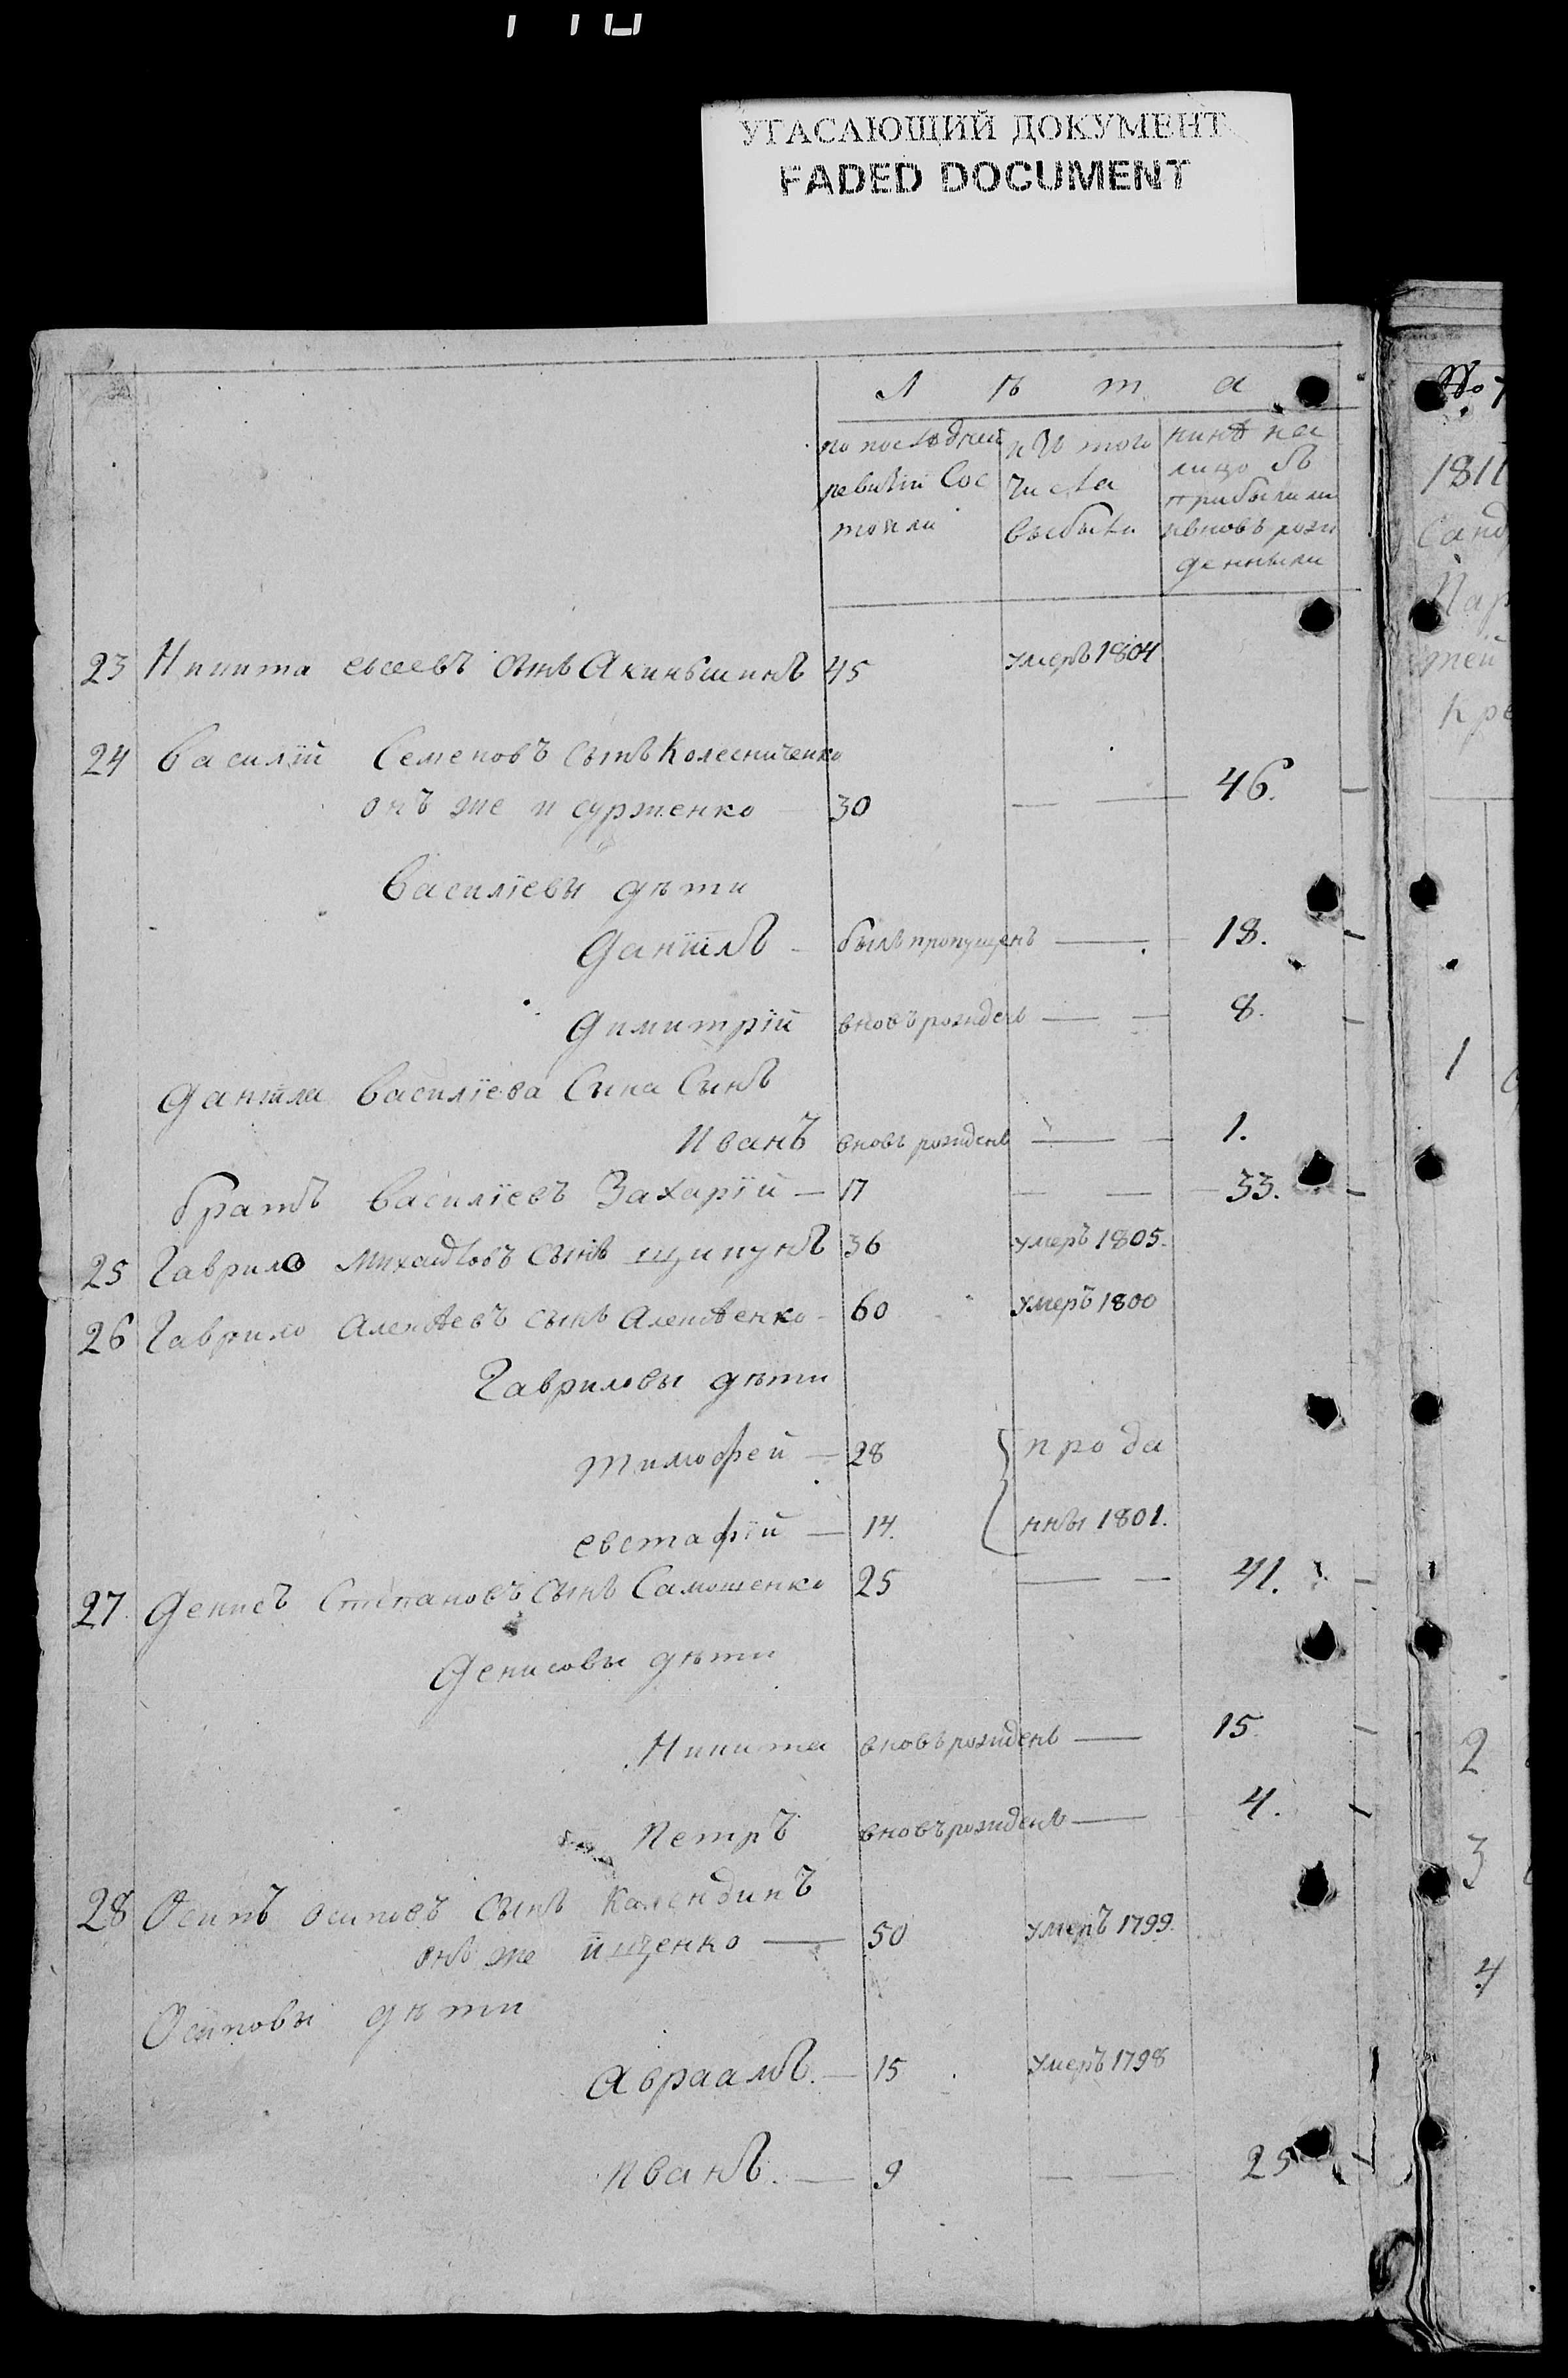 УГАСАЮЩИЙ ДОКУМЕНТ
FADED DOCUMENT
Л ѣ т а
по послѣдней ревизіи Сос тояли
изъ того числа выбыли
нинѣ на лицо съ прибылими ивновь рожденными
23 Никита евсеевъ сынъ Акиньшинъ 45 умеръ 1804
24 Василій Семеновъ сынъ Колесниченко
онъ же и сурженко 30 — — 46.
Василіевы дѣти
Даніилъ - былъ пропущенъ — 18.
Димитрій вновь рожденъ — — 8.
Даніила Василіева Сына Сынъ
Иванъ вновь рожденъ — — 1.
братъ Василіевъ Захарій — 17 — — 33.
25 Гаврило Михаиловъ сынъ щипунъ 36 умеръ 1805.
26 Гаврило Алексѣевъ сынъ Алексѣенко - 60 умеръ 1800
Гавриловы дѣти
Тимофей — 28 прода
евстафій — 14. нны 1801.
27 Денисъ Степановъ сынъ Самошенко 25 — — 41.
Денисовы дѣти
Никита вновь рожденъ — 15.
Петръ вновь рожденъ — 4.
28 Осипъ осиповъ сынъ Календинъ
онъ же ищенко — 50 умеръ 1799.
Осиповы дѣти
Авраамъ. — 15 умеръ 1798
Иванъ. — 9 — — 25
№ 7
1811
1
2
3
4